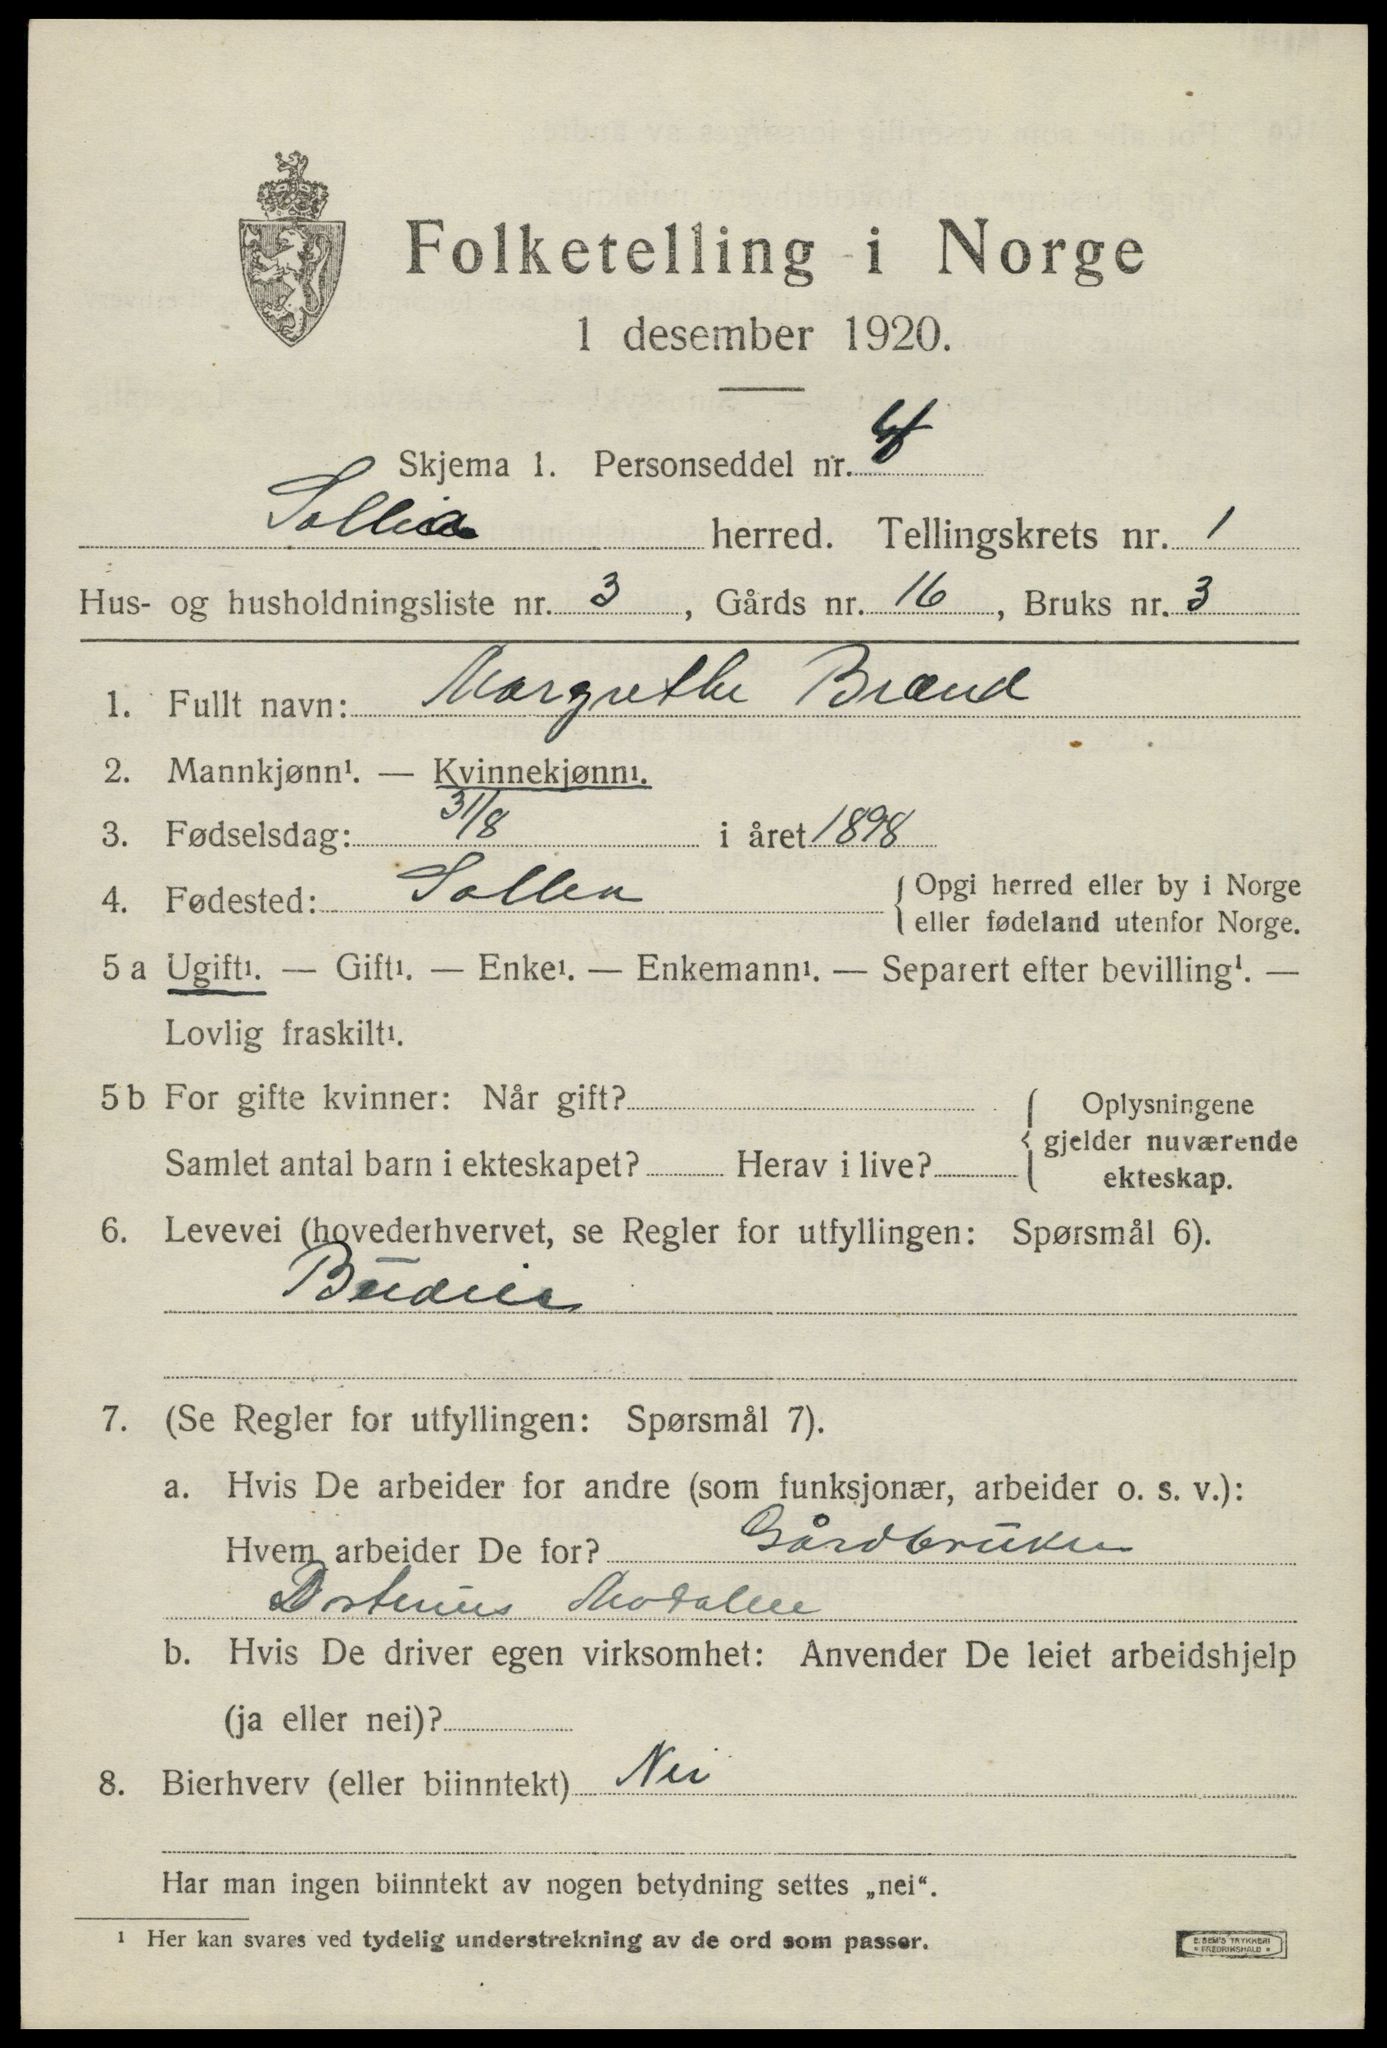 Folketelling i Norge
1 desember 1920.
Skjema 1. Personseddel nr. 4
Sollia herred. Tellingskrets nr. 1
Hus- og husholdningsliste nr. 3, Gårds nr. 16, Bruks nr. 3
1. Fullt navn: Margrethe Brænd
2. Mannkjønn¹. — Kvinnekjønn¹.
3. Fødselsdag: 31/8 i året 1898
4. Fødested: Sollia { Opgi herred eller by i Norge
eller fødeland utenfor Norge.
5 a Ugift¹. — Gift¹. — Enke¹. — Enkemann¹. — Separert efter bevilling¹. —
Lovlig fraskilt¹.
5 b For gifte kvinner: Når gift? { Oplysningene
gjelder nuværende
Samlet antal barn i ekteskapet? Herav i live? ekteskap.
6. Levevei (hovederhvervet, se Regler for utfyllingen: Spørsmål 6).
Budeie
7. (Se Regler for utfyllingen: Spørsmål 7).
a. Hvis De arbeider for andre (som funksjonær, arbeider o. s. v.):
Hvem arbeider De for? Gårdbruker
b. Hvis De driver egen virksomhet: Anvender De leiet arbeidshjelp
(ja eller nei)?
8. Bierhverv (eller biinntekt) Nei
Har man ingen biinntekt av nogen betydning settes „nei“.
¹ Her kan svares ved tydelig understrekning av de ord som passer.
E. SEM'S TRYKKERI
* FREDRIKSHALD *